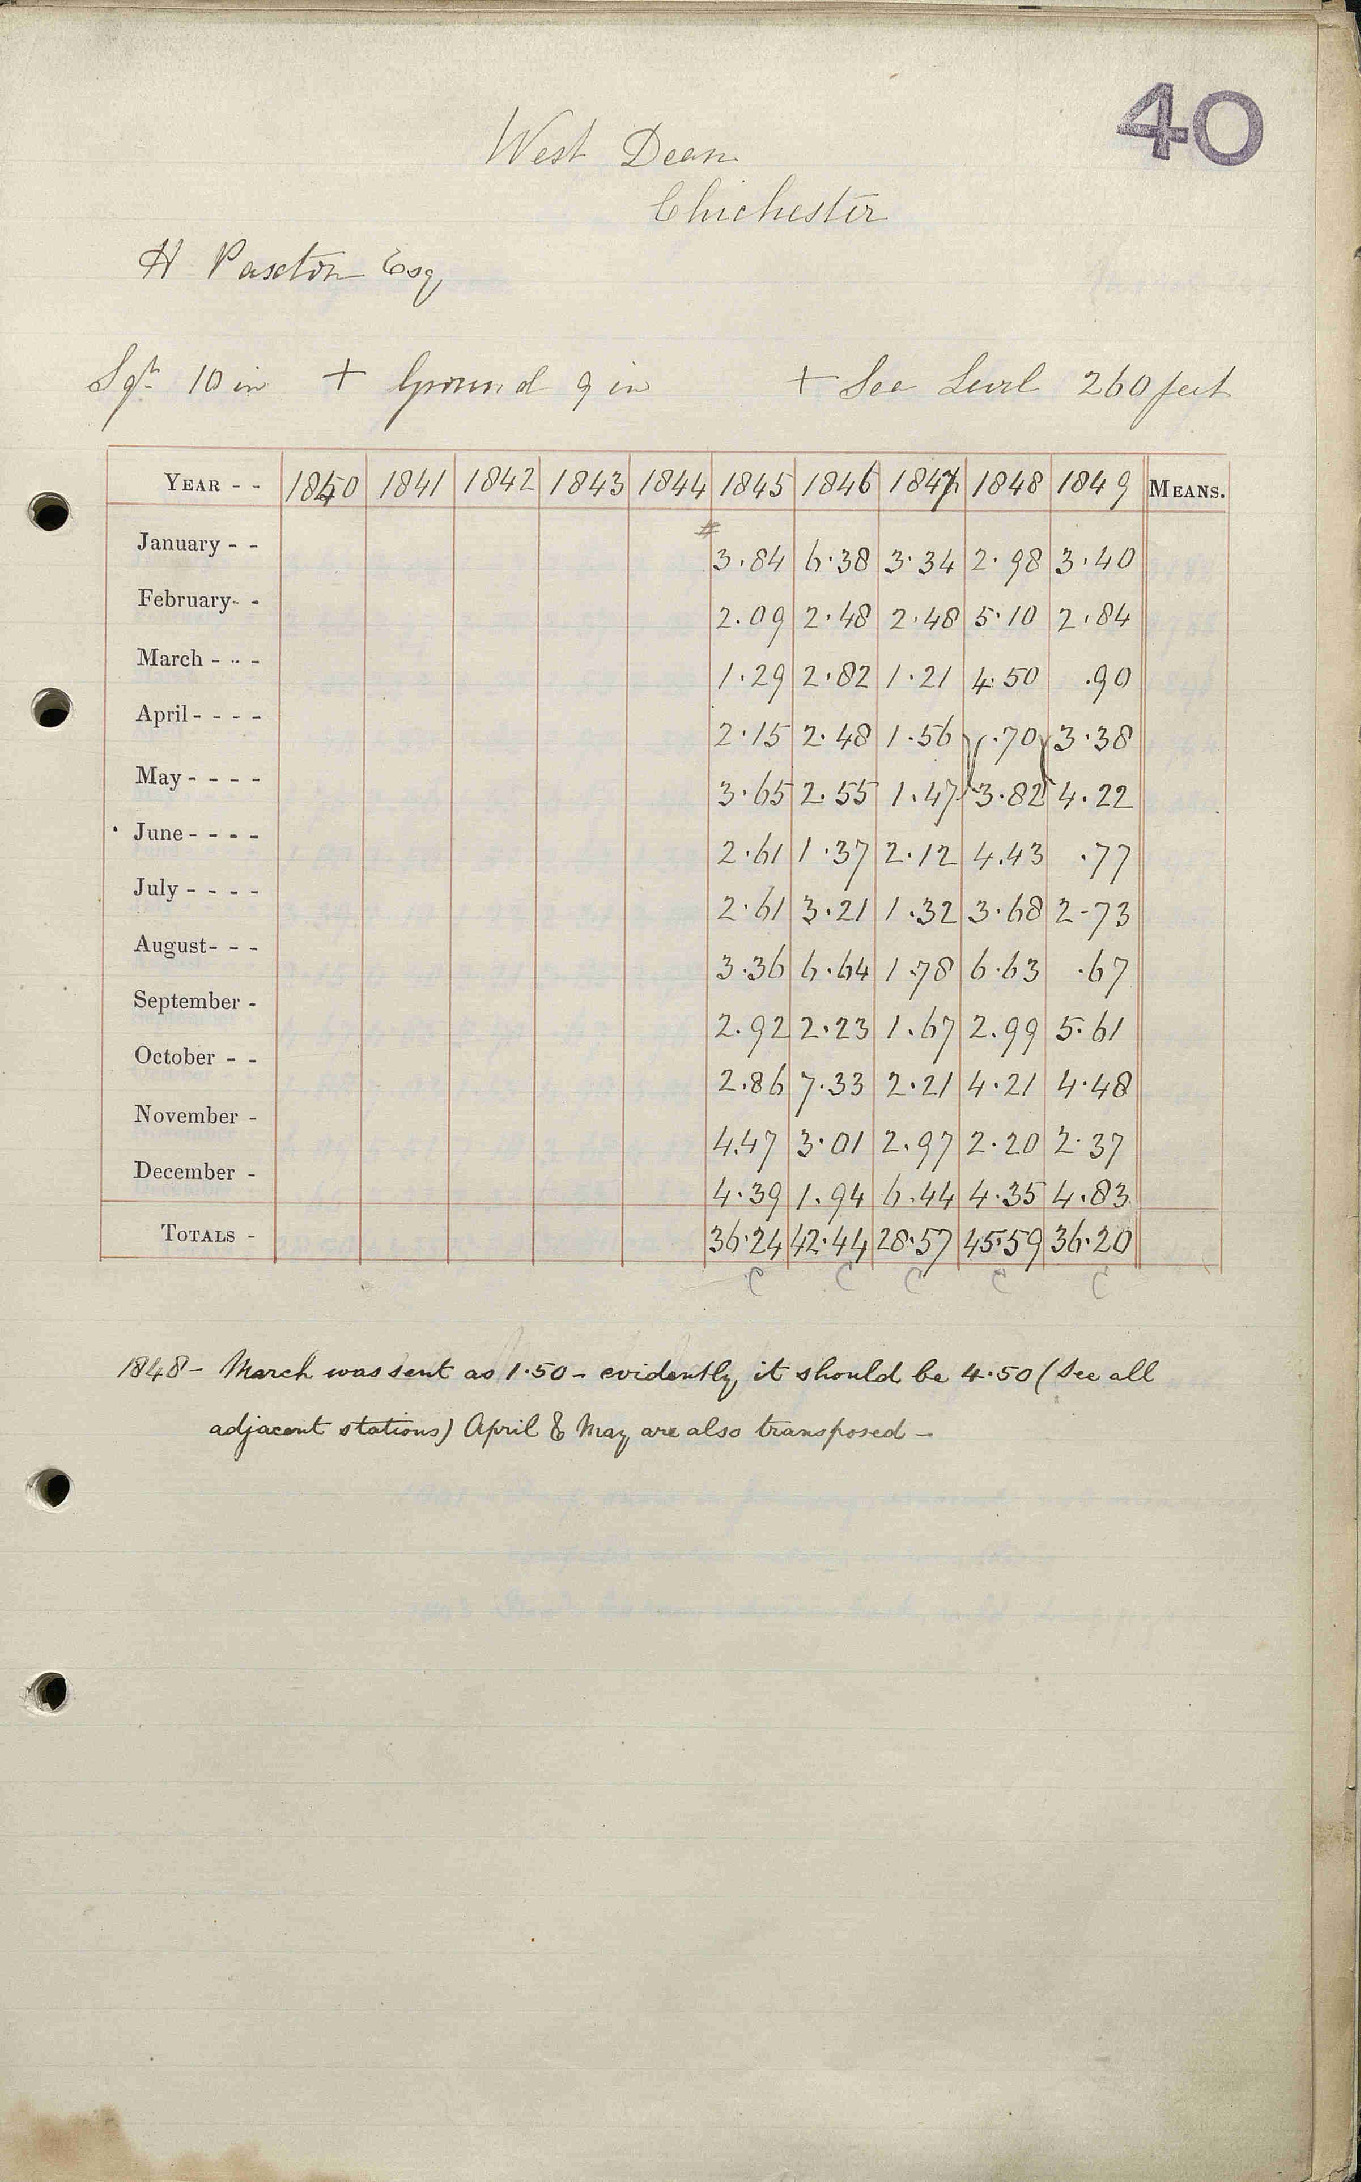 40
West Dean
Chichester
H Paxton Esq
Sqr 10 in + Ground 9 in + Sea Level 260 feet
YEAR - - 1840 1841 1842 1843 1844 1845 1846 1847 1848 1849 MEANS.
January - - 3.84 6.38 3.34 2.98 3.40
February - - 2.09 2.48 2.48 5.10 2.84
March - - - 1.29 2.82 1.21 4.50 .90
April - - - - 2.15 2.48 1.56 .70 3.38
May - - - - 3.65 2.55 1.47 3.82 4.22
June - - - - 2.61 1.37 2.12 4.43 .77
July - - - - 2.61 3.21 1.32 3.68 2.73
August - - - 3.36 6.64 1.78 6.63 .67
September - 2.92 2.23 1.67 2.99 5.61
October - - 2.86 7.33 2.21 4.21 4.48
November - 4.47 3.01 2.97 2.20 2.37
December - 4.39 1.94 6.44 4.35 4.83
TOTALS - 36.24 42.44 28.57 45.59 36.20
C C C C C
1848 - March was sent as 1.50 - evidently it should be 4.50 (See all
adjacent stations) April & May are also transposed -